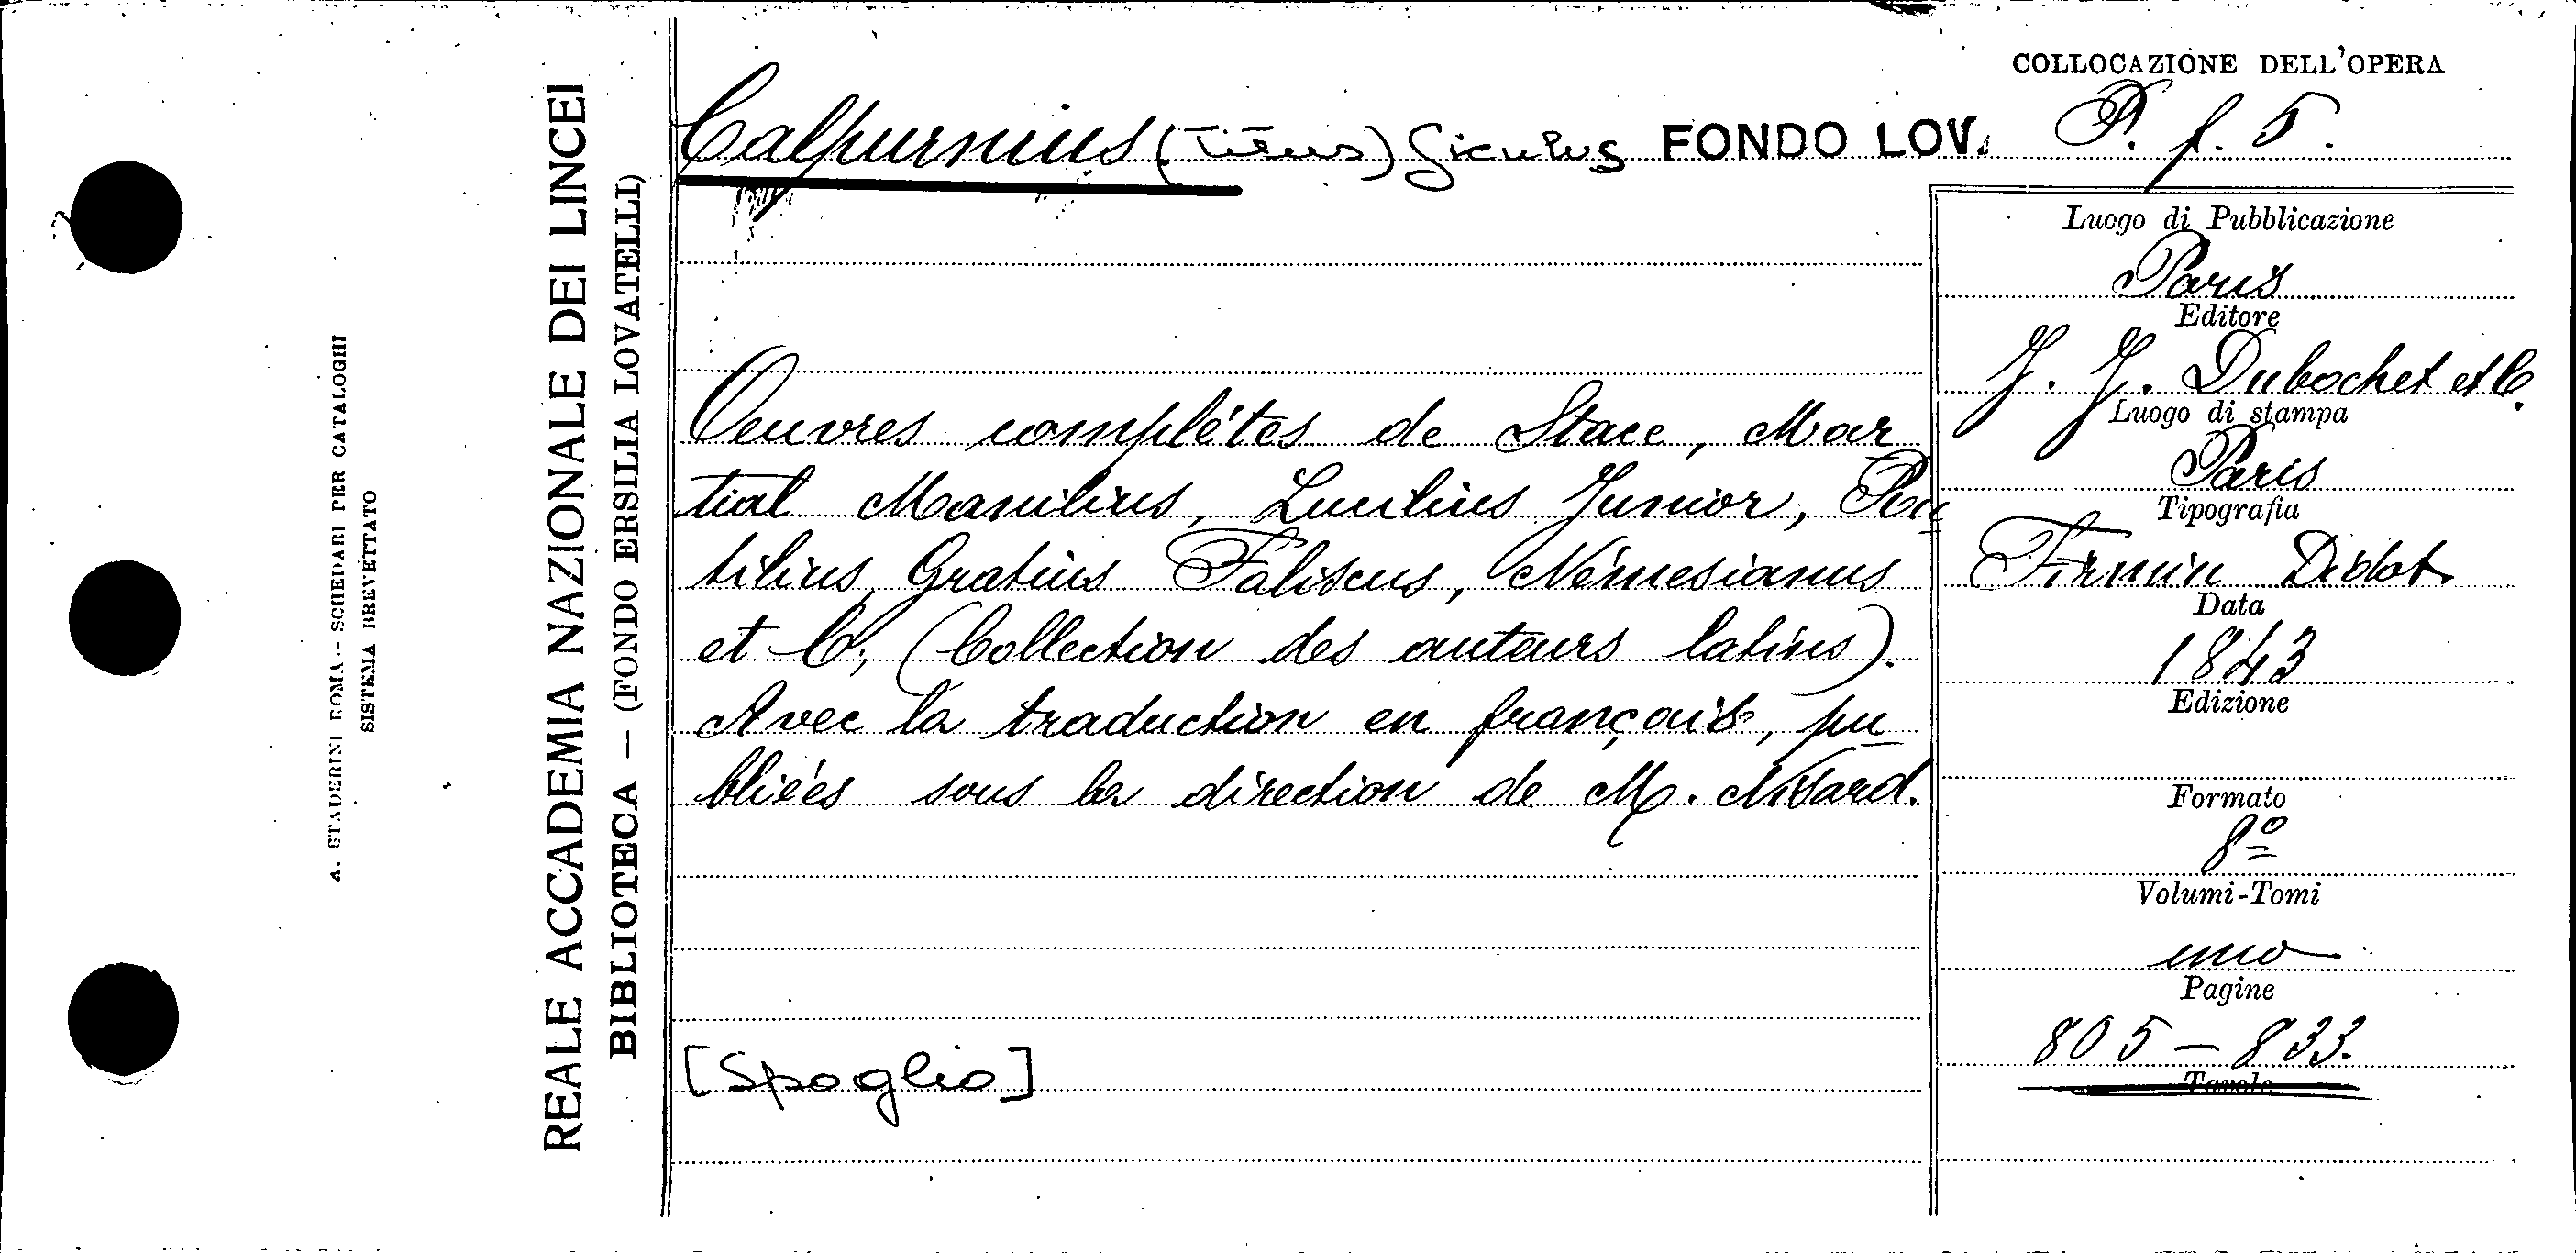 COLLOCAZIONE DELL'OPERA
Calpurnius (Titus) Siculus FONDO LOV. P. f. 5.
Oeuvres complétes de Stace, Mar
tial Manilius, Lucilius Junior, Ru
tilius, Gratius Faliscus, Némesianus
et C, (Collection des auteurs latins).
Avec la traduction en français, pu
bliées sous la direction de M. Nisard.
[Spoglio]
Luogo di Pubblicazione
Paris
Editore
J. J. Dubochet et C.
Luogo di stampa
Paris
Tipografia
Firmin Didot
Data
1843
Edizione
Formato
8º
Volumi-Tomi
uno
Pagine
805 – 833.
Tavole
REALE ACCADEMIA NAZIONALE DEI LINCEI
BIBLIOTECA — (FONDO ERSILIA LOVATELLI)
A. STADERINI ROMA - SCHEDARI PER CATALOGHI
SISTEMA BREVETTATO